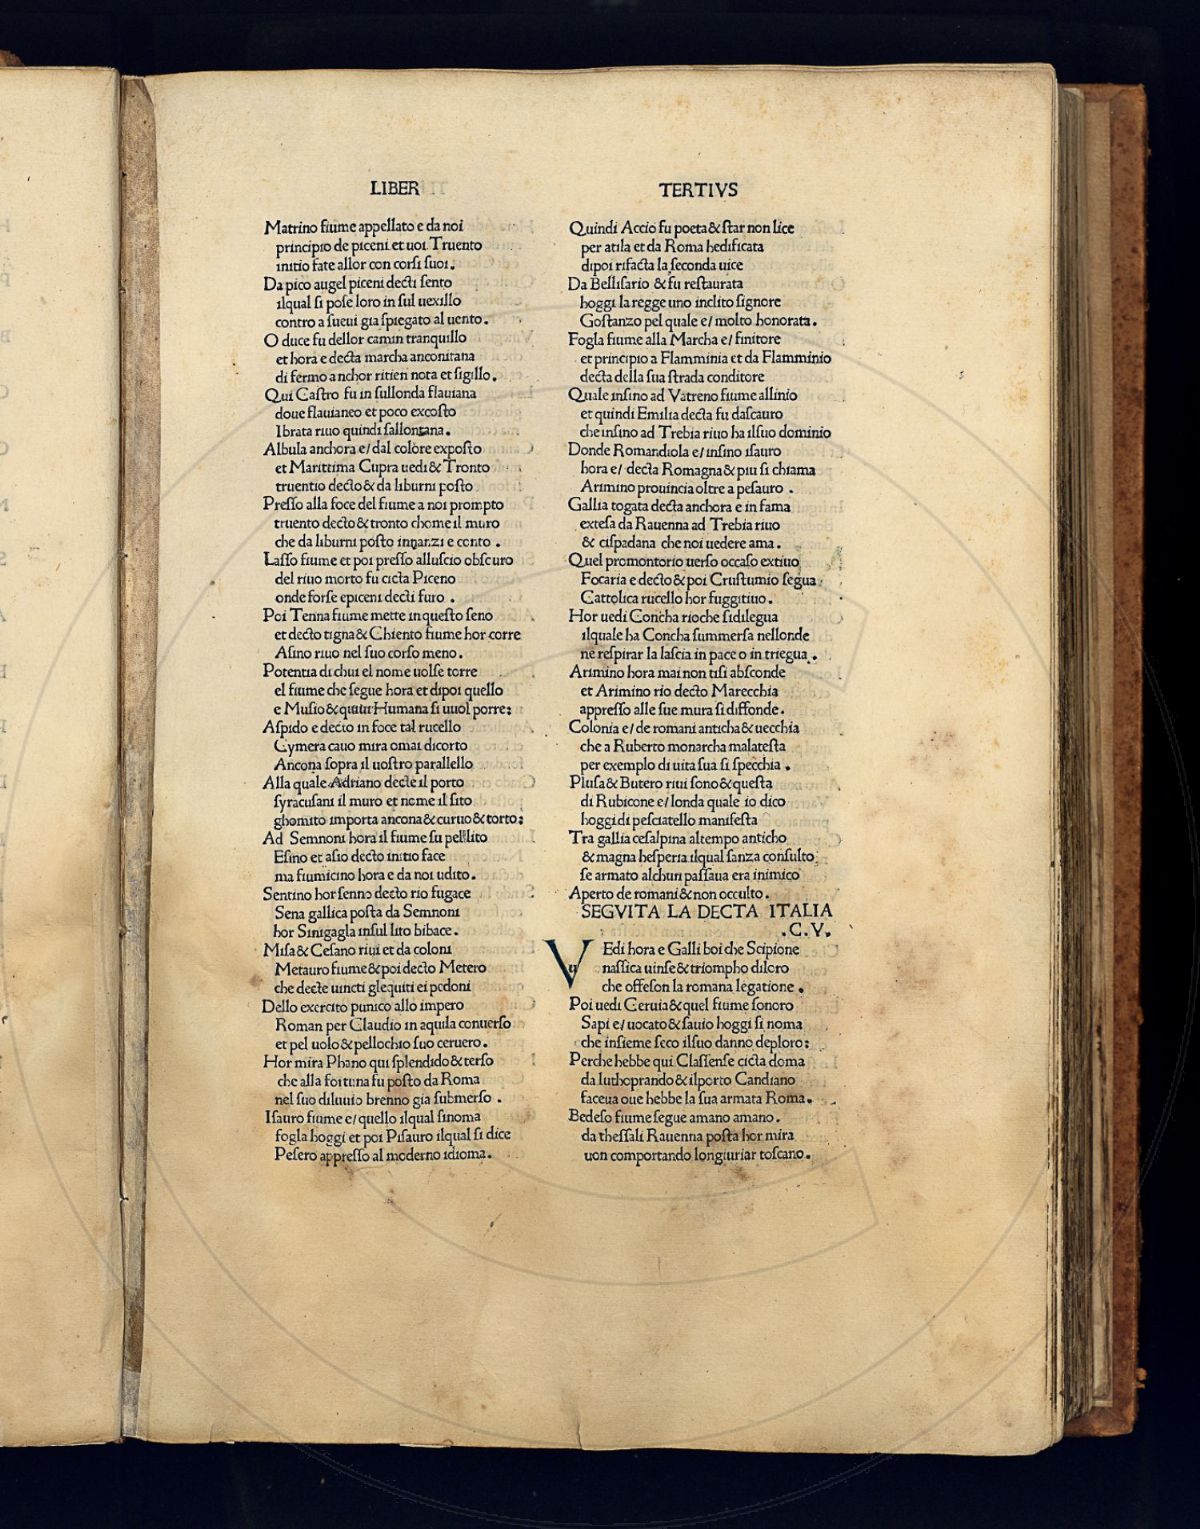 LIBER TERTIVS
Matrino fiume appellato e da noi
principio de piceni et uoi Truento
initio fate allor con corsi suoi.
Da pico augel piceni decti sento
ilqual si pose loro in sul uexillo
contro a sueui gia spiegato al uento.
O duce fu dellor camin tranquillo
et hora e decta marcha anconitana
di fermo anchor ritien nota et sigillo.
Qui Castro fu in sullonda flauiana
doue flauianeo et poco excosto
Ibrata riuo quindi sallontana.
Albula anchora e/ dal colore exposto
et Marittima Cupra uedi & Tronto
truentio decto & da liburni posto
Presso alla foce del fiume a noi prompto
truento decto & tronto chome il muro
che da liburni posto innanzi e conto.
Lasso fiume et poi presso alluscio obscuro
del riuo morto fu cicta Piceno
onde forse epiceni decti furo.
Poi Tenna fiume mette in questo seno
et decto tigna & Chiento fiume hor corre
Asino riuo nel suo corso meno.
Potentia di chui el nome uolse torre
el fiume che segue hora et dipoi quello
e Musio & quiui Humana si uuol porre:
Aspido e decto in foce tal rucello
Cymera cauo mira omai dicorto
Ancona sopra il uostro parallello
Alla quale Adriano decte il porto
syracusani il muro et nome il sito
ghomito importa ancona & curuo & torto:
Ad Semnoni hora il fiume fu pellito
Esino et asio decto initio face
ma fiumicino hora e da noi udito.
Sentino hor senno decto rio fugace
Sena gallica posta da Semnoni
hor Sinigagla insul lito bibace.
Misa & Cesano riui et da coloni
Metauro fiume & poi decto Metero
che decte uincti glequiti ei pedoni
Dello exercito punico allo impero
Roman per Claudio in aquila conuerso
et pel uolo & pellochio suo ceruero.
Hor mira Phano qui splendido & terso
che alla fortuna fu posto da Roma
nel suo diluuio brenno gia submerso.
Isauro fiume e/ quello ilqual sinoma
fogla hoggi et poi Pisauro ilqual si dice
Pesero appresso al moderno idioma.
Quindi Accio fu poeta & star non lice
per atila et da Roma hedificata
dipoi rifacta la seconda uice
Da Bellisario & fu restaurata
hoggi la regge uno inclito signore
Gostanzo pel quale e/ molto honorata.
Fogla fiume alla Marcha e/ finitore
et principio a Flamminia et da Flamminio
decta della sua strada conditore
Quale insino ad Vatreno fiume allinio
et quindi Emilia decta fu dascauro
che insino ad Trebia riuo ha ilsuo dominio
Donde Romandiola e/ insino isauro
hora e/ decta Romagna & piu si chiama
Arimino prouincia oltre a pesauro.
Gallia togata decta anchora e in fama
extesa da Rauenna ad Trebia riuo
& cispadana che noi uedere ama.
Quel promontorio uerso occaso extiuo
Focaria e decto & poi Crustumio segua
Cattolica rucello hor fuggitiuo.
Hor uedi Concha rioche sidilegua
ilquale ha Concha summersa nellonde
ne respirar la lascia in pace o in triegua.
Arimino hora mai non tisi absconde
et Arimino rio decto Marecchia
appresso alle sue mura si diffonde.
Colonia e/ de romani anticha & uecchia
che a Ruberto monarcha malatesta
per exemplo di uita sua si specchia.
Plusa & Butero riui sono & questa
di Rubicone e/ londa quale io dico
hoggi di pesciatello manifesta
Tra gallia cesalpina altempo anticho
& magna hesperia ilqual sanza consulto
se armato alchun passaua era inimico
Aperto de romani & non occulto.
SEGVITA LA DECTA ITALIA
.C.V.
VEdi hora e Galli boi che Scipione
nassica uinse & triompho diloro
che offeson la romana legatione.
Poi uedi Ceruia & quel fiume sonoro
Sapi e/ uocato & sauio hoggi si noma
che insieme seco ilsuo danno deploro:
Perche hebbe qui Classense cicta doma
da luthoprando & ilporto Candiano
faceua oue hebbe la sua armata Roma.
Bedeso fiume segue amano amano.
da thessali Rauenna posta hor mira
uon comportando longiuriar toscano.